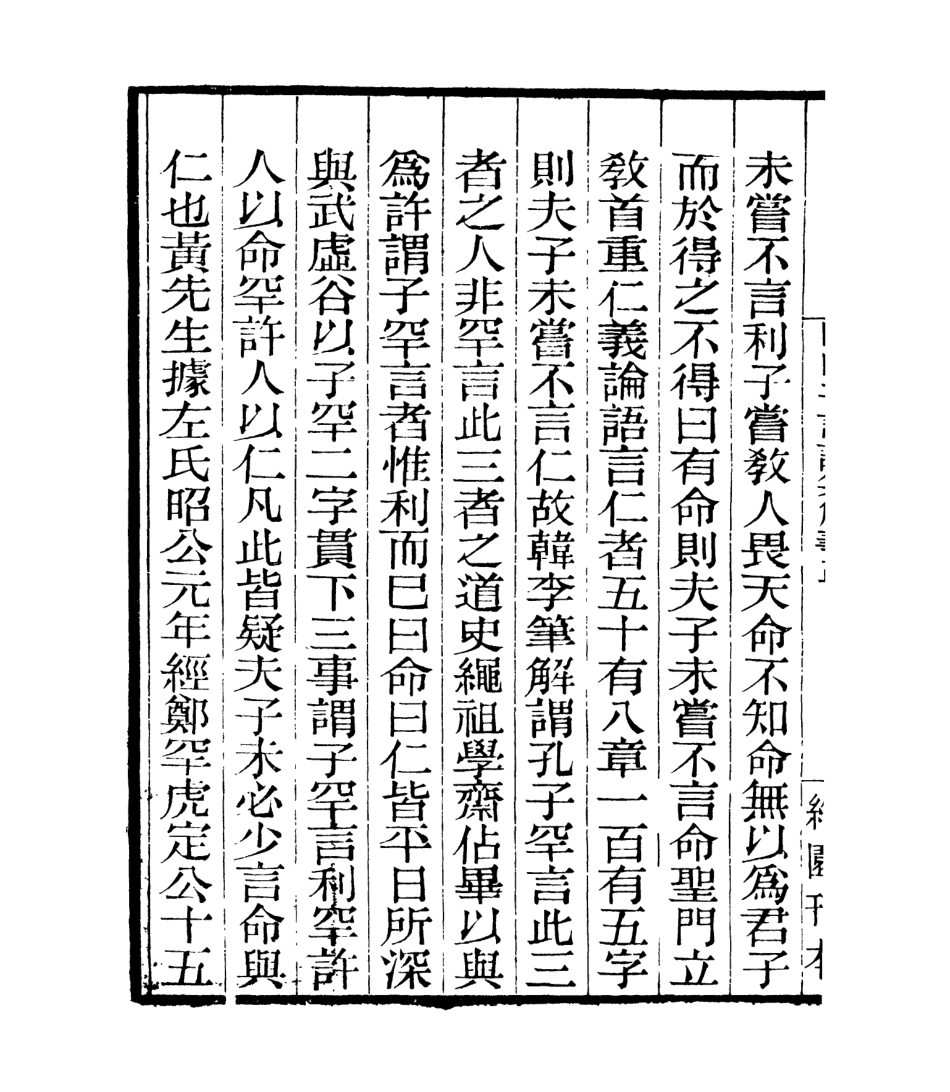 未嘗不言利子嘗敎人畏天命不知命無以爲君子
而於得之不得曰有命則夫子未嘗不言命聖門立
敎首重仁義論語言仁者五十有八章一百有五字
則夫子未嘗不言仁故韓李筆解謂孔子罕言此三
者之人非罕言此三者之道史繩祖學齋佔畢以與
爲許謂子罕言者惟利而巳曰命曰仁皆平日所深
與武虛谷以子罕二字貫下三事謂子罕言利罕許
人以命罕許人以仁凡此皆疑夫子未必少言命與
仁也黃先生據左氏昭公元年經鄭罕虎定公十五